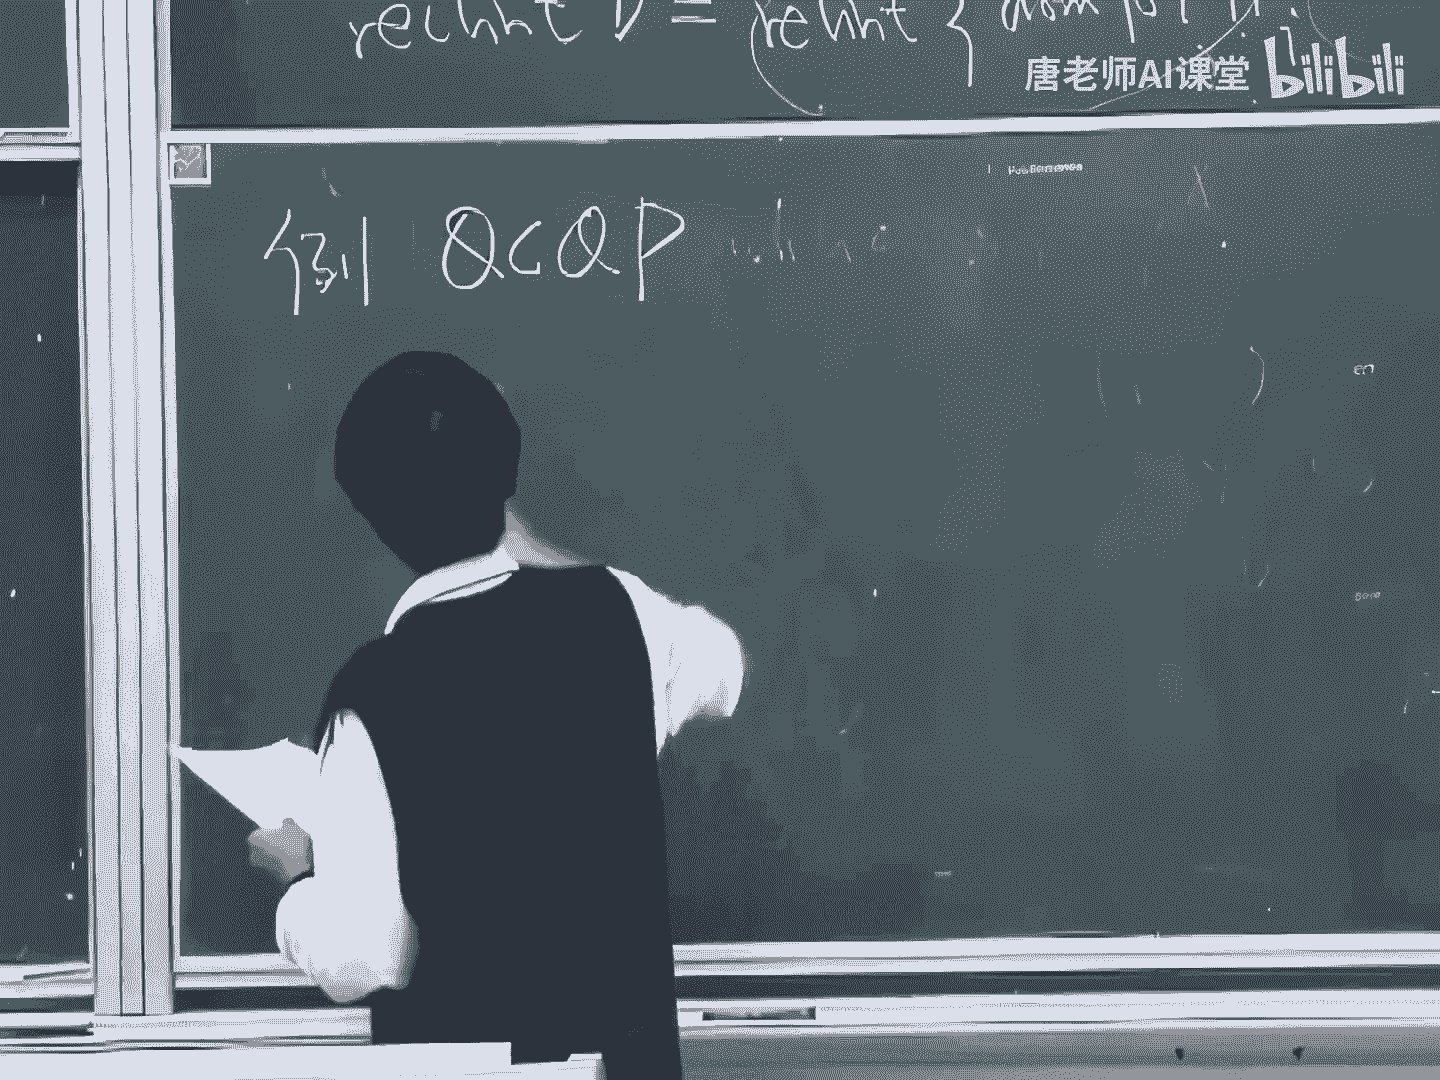 relint D = relint { dom f0 ∩
唐老师AI课堂 bilibili
例 QCQP